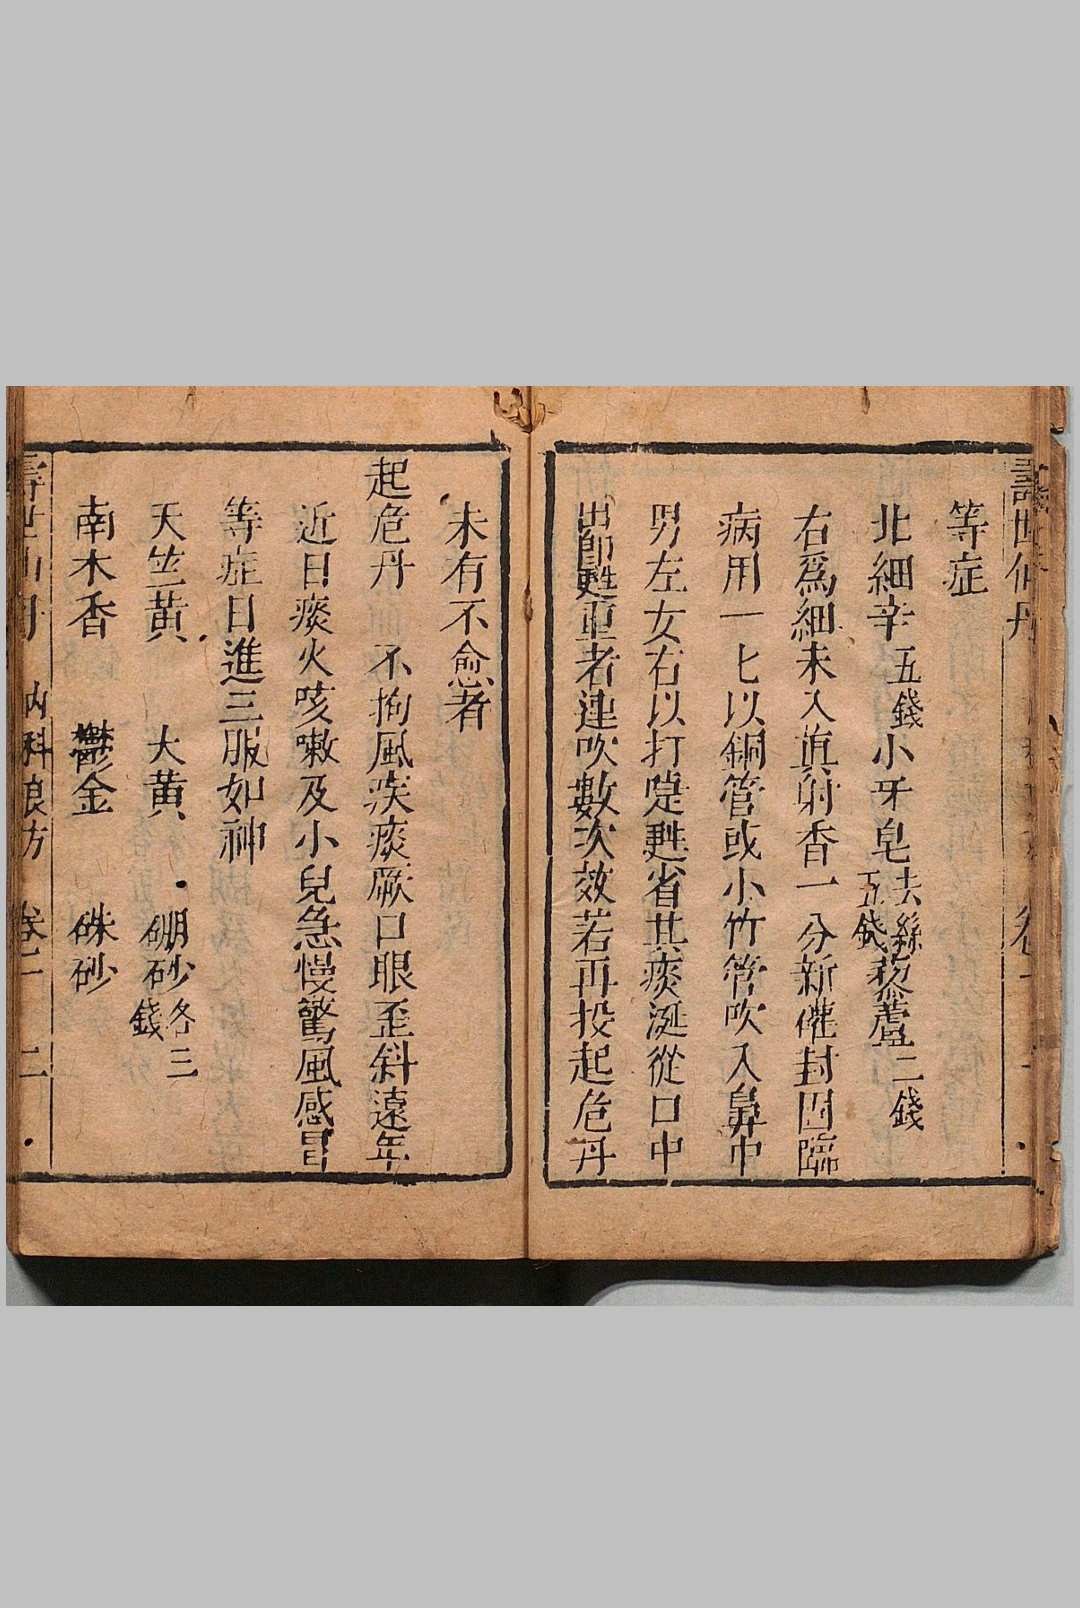 壽世仙丹
卷一
等症
北細辛五錢小牙皂去絲五錢藜蘆二錢
右爲細末入真射香一分新罐封固臨
病用一匕以銅管或小竹管吹入鼻中
男左女右以打嚏甦省其痰涎從口中
出即甦重者連吹數次效若再投起危丹
未有不愈者
起危丹 不拘風疾痰厥口眼歪斜遠年
近日痰火咳嗽及小兒急慢驚風感冒
等症日進三服如神
天竺黃 大黃 硼砂各三錢
南木香 鬱金 硃砂
壽世仙丹 内科良方 卷一 二